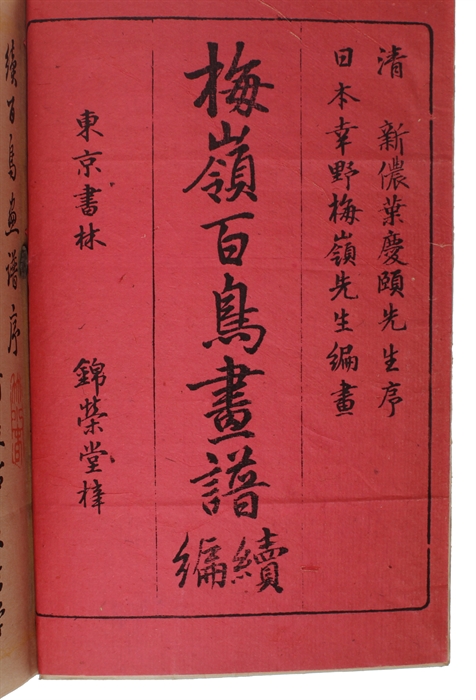 清 新儂葉慶頤先生序
日本幸野梅嶺先生編畫
梅嶺百鳥畫譜
續編
東京書林 錦榮堂梓
續百鳥畫譜序